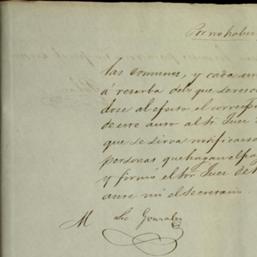 Por no haber
las comunes, y cada un
á reserba del que se reso
dose al efecto el correspo
de este auto al Sr Juez
que se sirva notificarse
personas que hagan el pa
y firmó el Sor Juez de
ante mi el secretario.
M Lic Gonzalez